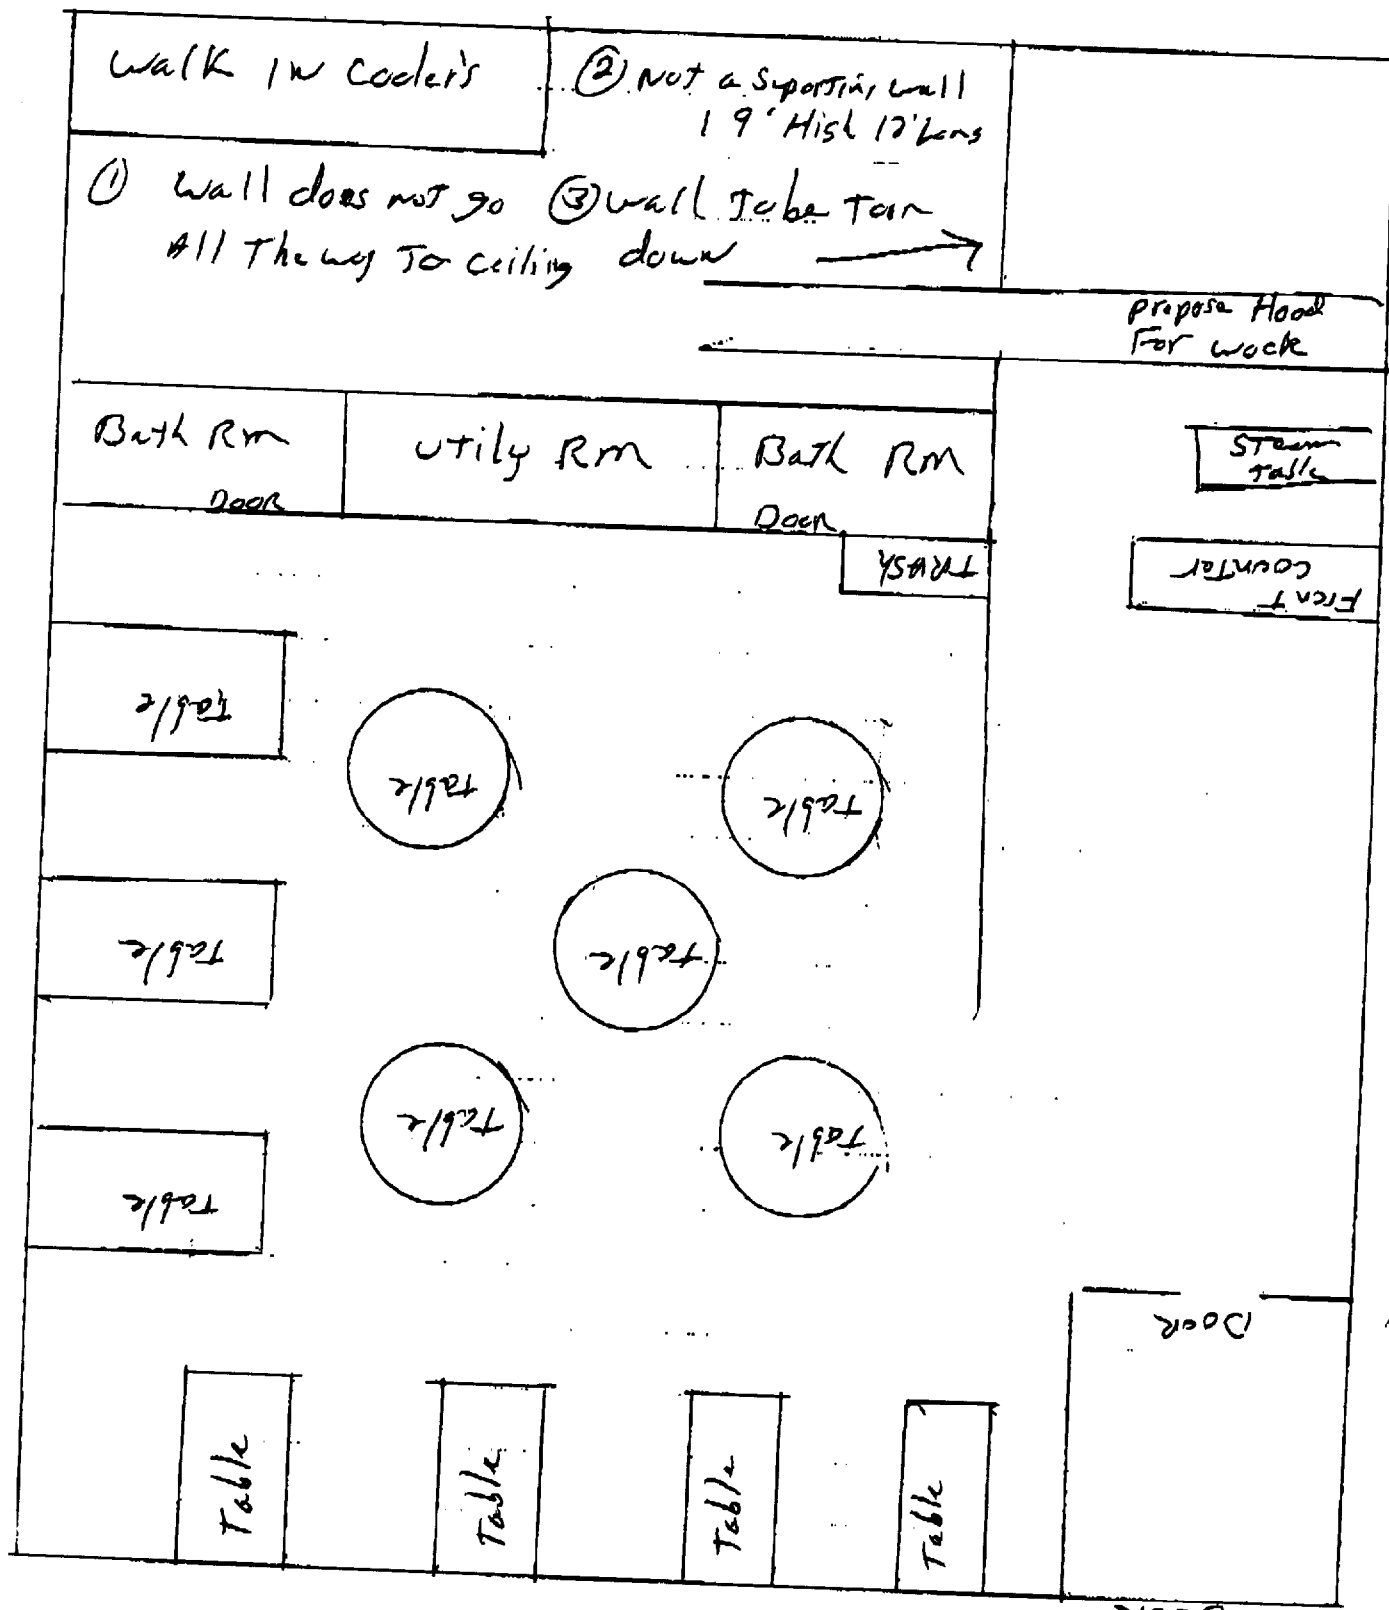 Walk IN Cooler's
② Not a Suporting wall
1 9' High 12' Long
① Wall does not go
All The way To Ceiling
③ Wall To be Torn
down
Propose Hood
For wock
Bath Rm
DOOR
Utily Rm
Bath Rm
Door
Steam
Table
TRASH
Front
Counter
Table
Table
Table
Table
Table
Table
Table
Table
Door
Table
Table
Table
Table
Door